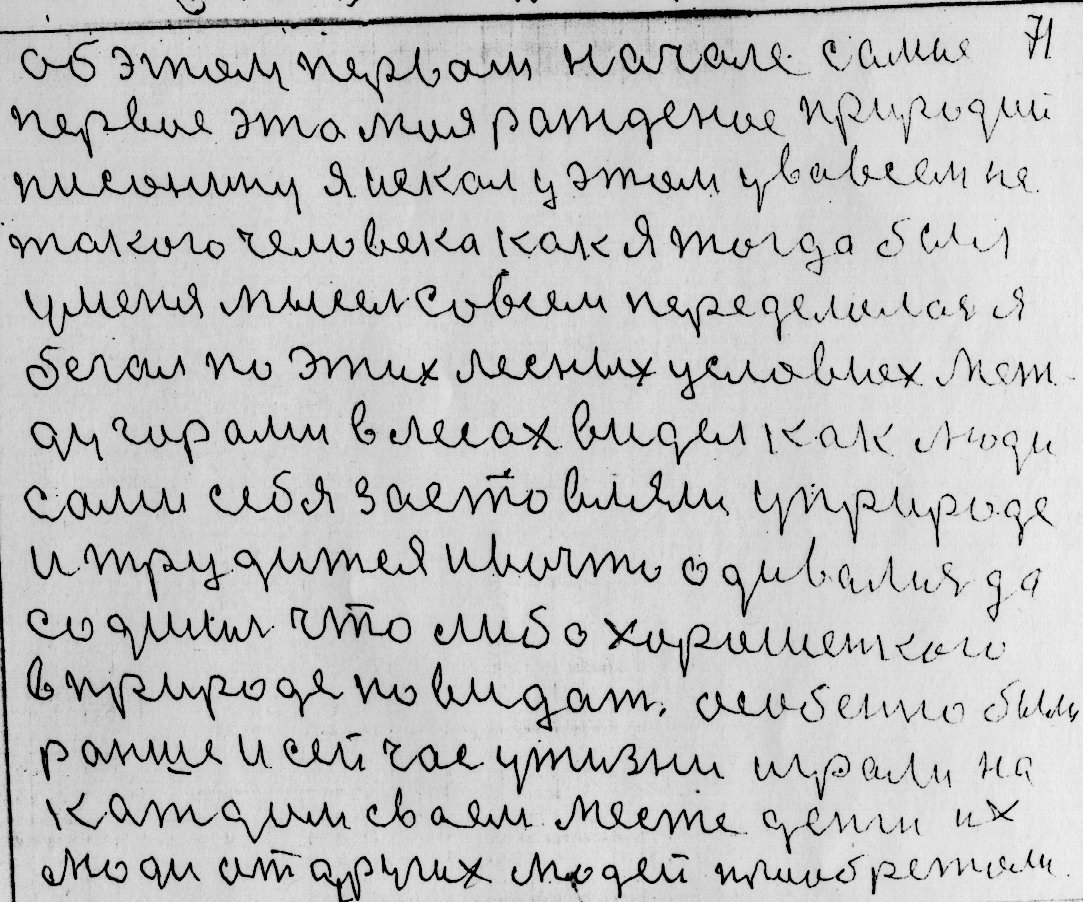 71
об этом первом начале самие
первое это моя раждение природий
писонину я искал у этом увовсем не
такого человека как я тогда бил
уменя мысел совсем переделалася я
бегал по этих лесных условиех меж
ду горами влесах видел как люди
сами себя заставляли уприроде
итрудится ивочто одивалия да
содили что либо хорошенкого
вприроде повидат. особенно были
ранше исейчас ужизни играли на
каждим сваем месте денги их
люди отдругих людей приобретали